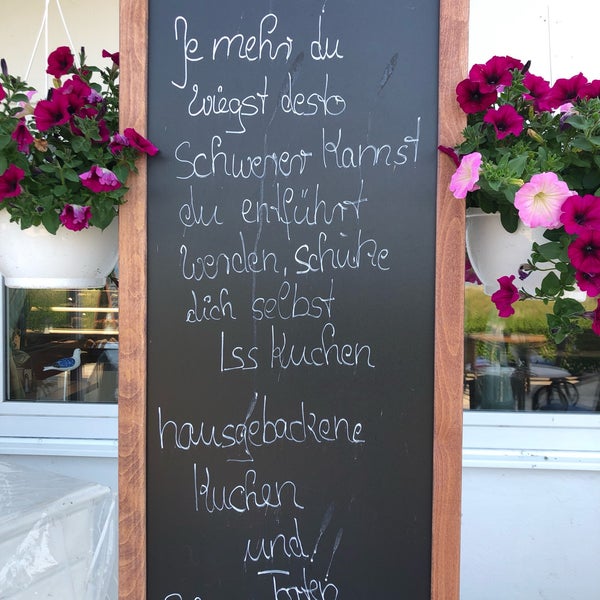 Je mehr du
wiegst desto
schwerer kannst
du entführt
werden, schütze
dich selbst
Iss Kuchen
hausgebackene
Kuchen
und!
Torten!